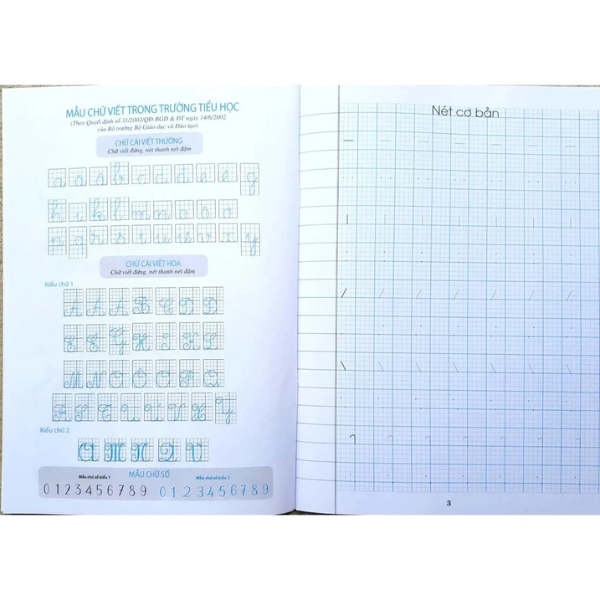 MẪU CHỮ VIẾT TRONG TRƯỜNG TIỂU HỌC
(Theo Quyết định số 31/2002/QĐ-BGD & ĐT ngày 14/6/2002
của Bộ trưởng Bộ Giáo dục và Đào tạo)
CHỮ CÁI VIẾT THƯỜNG
Chữ viết đứng, nét thanh nét đậm
a ă â b c d đ e ê g
h i k l m n o ô ơ
p q r s t u ư v x y
CHỮ CÁI VIẾT HOA
Chữ viết đứng, nét thanh nét đậm
Kiểu chữ 1
A Ă Â B C D Đ
E Ê G H I K L
M N O Ô Ơ P Q
R S T U Ư V X Y
Kiểu chữ 2
A M N Q V
MẪU CHỮ SỐ
Mẫu chữ số kiểu 1 Mẫu chữ số kiểu 2
0 1 2 3 4 5 6 7 8 9 0 1 2 3 4 5 6 7 8 9
Nét cơ bản
3